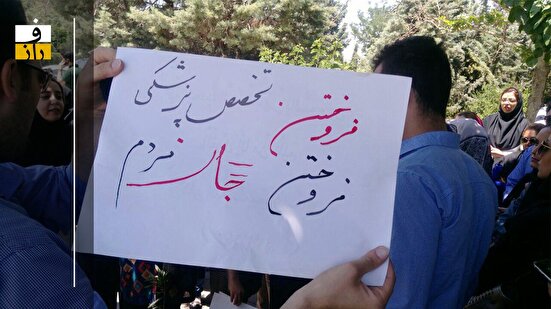 فراز
فروختن تخصص پزشکی
فروختن جان مردم